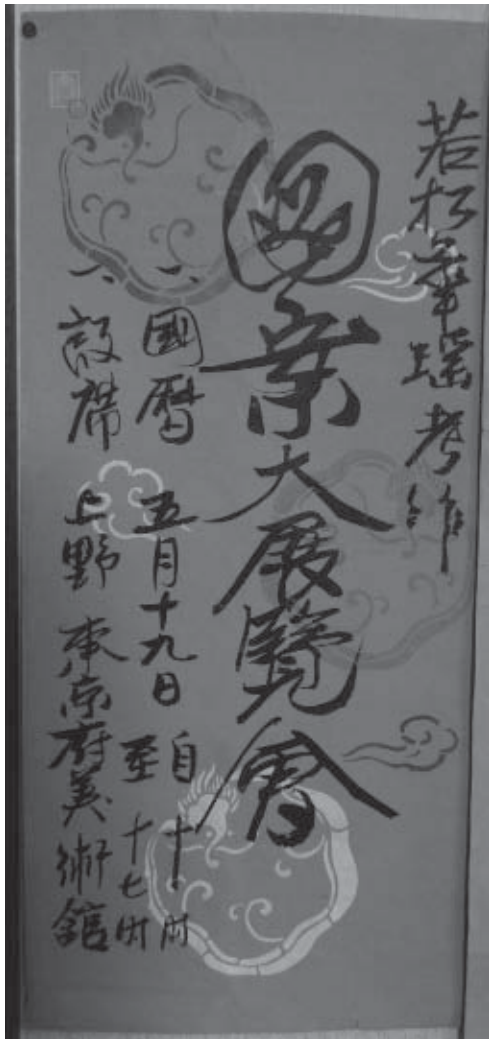 若松華瑤考作
圖案大展覽會
一、國曆 五月十九日 自十時
至十七時
一、設席 上野 東京府美術館